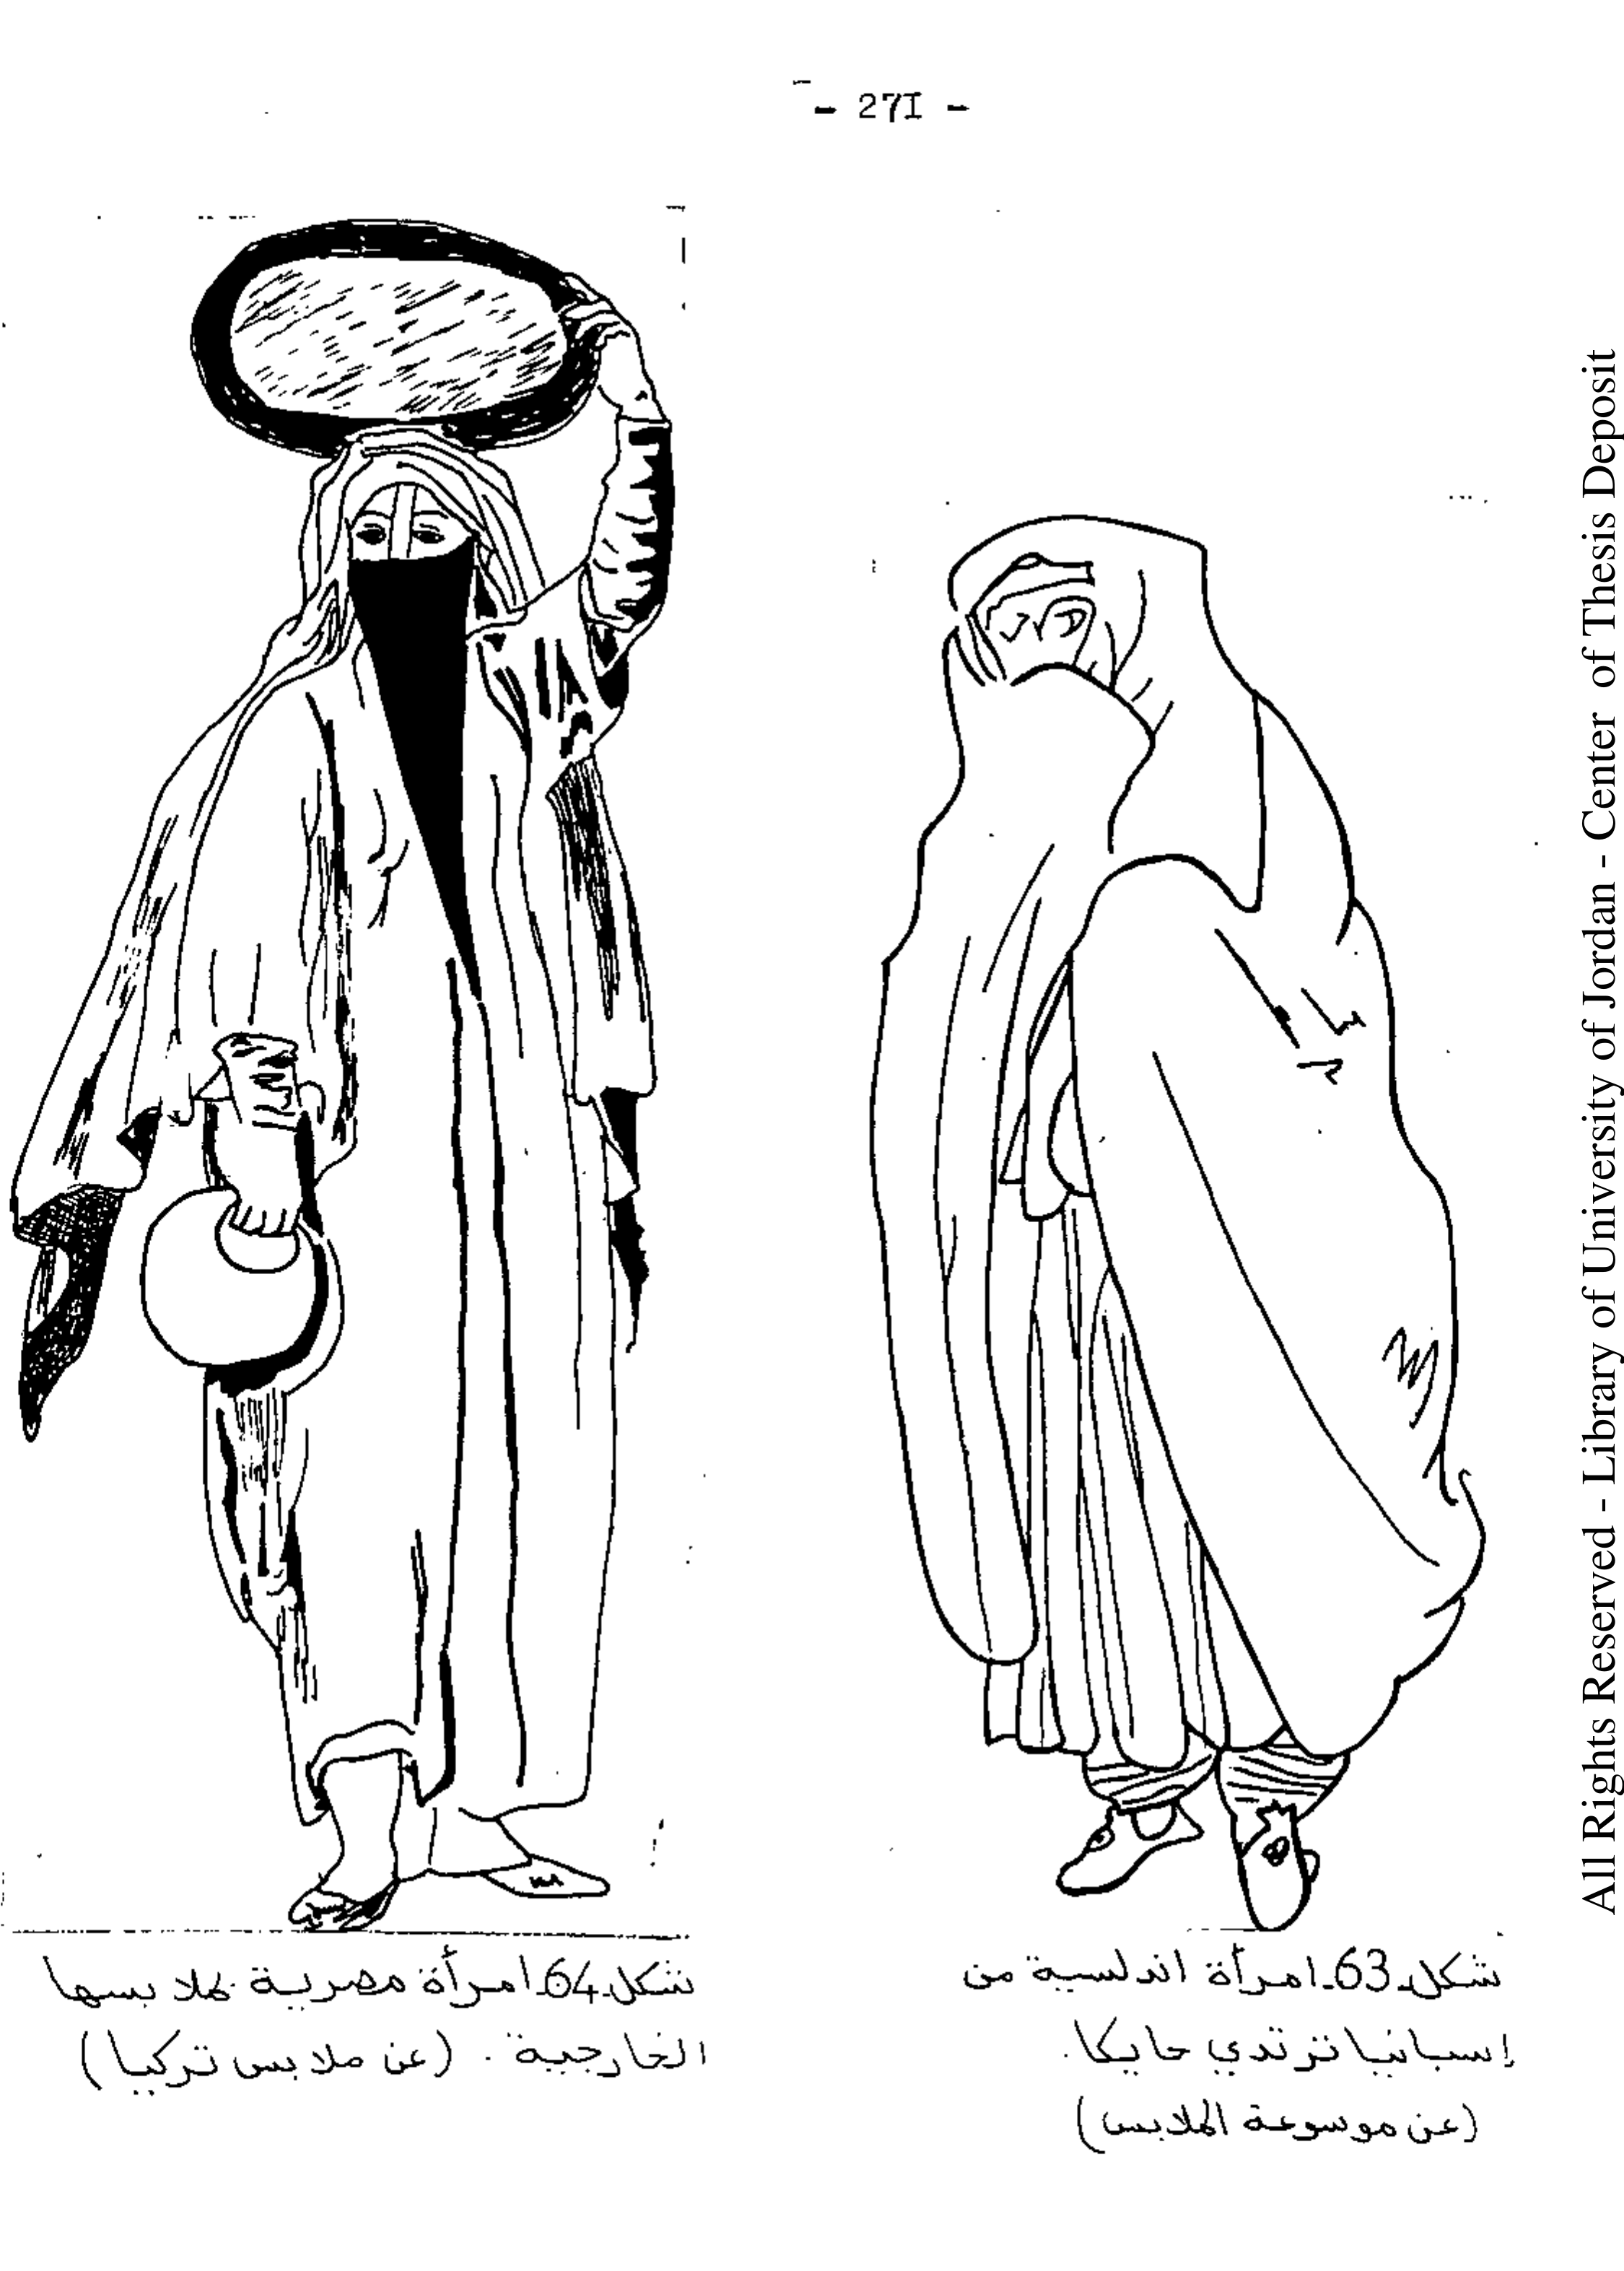 - 271 -
شكل-63-امرأة اندلسية من
إسبانيا ترتدي حايكا.
(عن موسوعة الملابس)
شكل-64-امرأة مصرية بملابسها
الخارجية . (عن ملابس تركيا)
All Rights Reserved - Library of University of Jordan - Center of Thesis Deposit